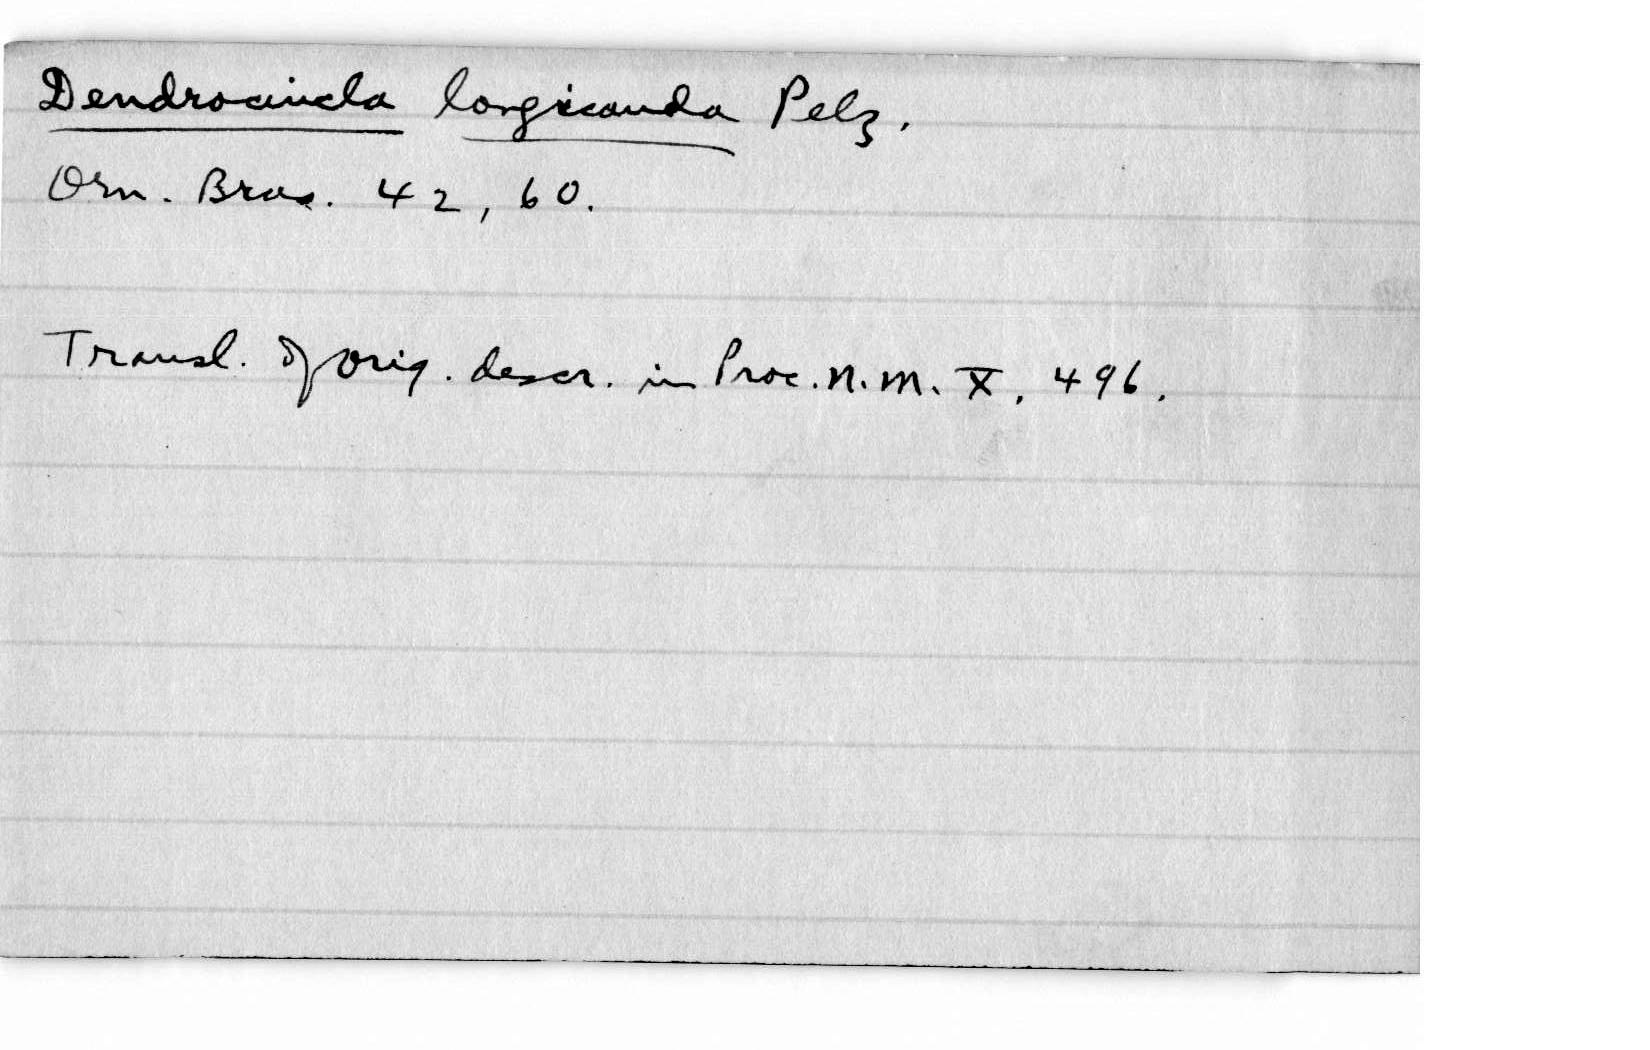 Dendrocincla longicauda Pelz.
Orn. Bras. 42, 60.
Transl. of orig. descr. in Proc. N. M. X, 496.